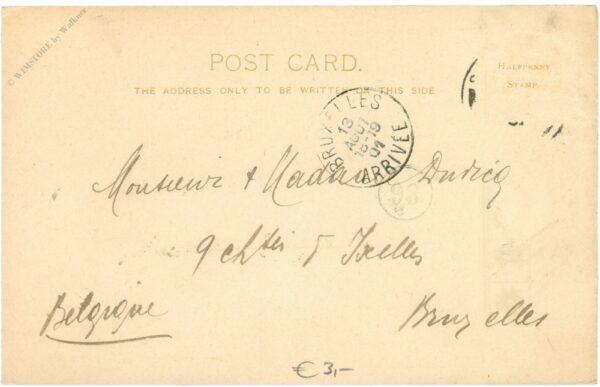 © WIMSTORE by Walkner
POST CARD.
THE ADDRESS ONLY TO BE WRITTEN ON THIS SIDE
HALFPENNY
STAMP.
BRUXELLES
13
AOUT
18-19
ARRIVÉE
Monsieur & Madame
9 chée d'Ixelles
Belgique
Bruxelles
€ 3,-